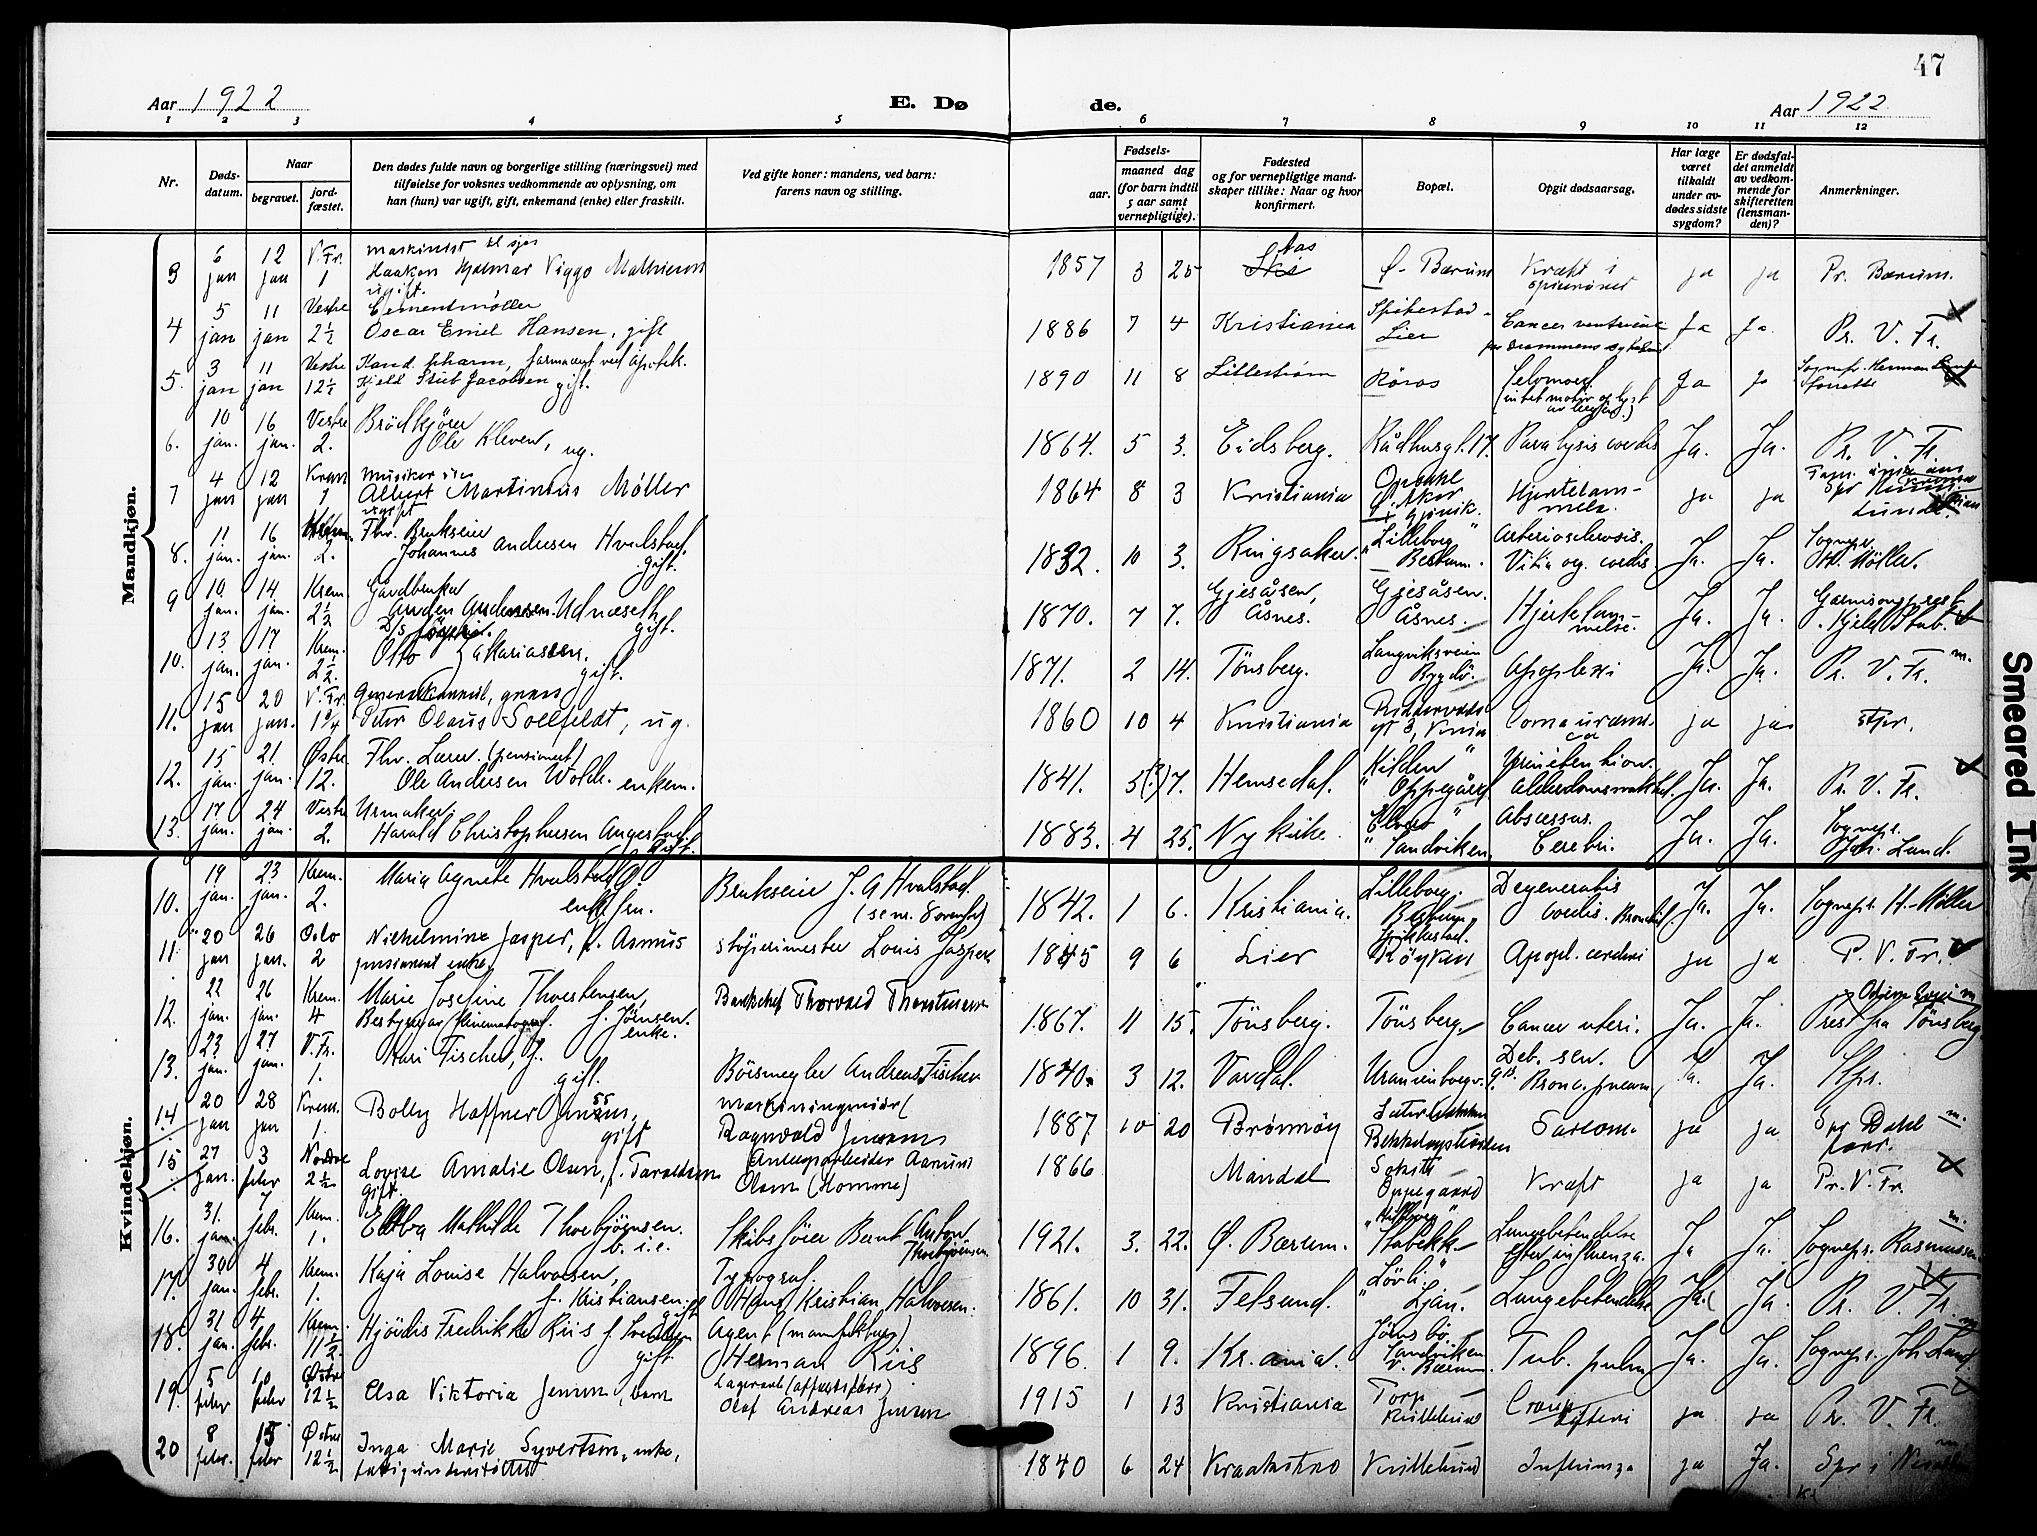 47
Aar 1922
E. Dø
de.
Aar 1922
1 2 3 4 5 6 7 8 9 10 11 12
Nr.
Døds-
datum.
Naar
begravet.
jord-
fæstet.
Den dødes fulde navn og borgerlige stilling (næringsvei) med
tilføielse for voksnes vedkommende av oplysning, om
han (hun) var ugift, gift, enkemand (enke) eller fraskilt.
Ved gifte koner: mandens, ved barn:
farens navn og stilling.
Fødsels-
aar.
maaned dag
(for barn indtil
5 aar samt
vernepligtige).
Fødested
og for vernepligtige mand-
skaper tillike: Naar og hvor
konfirmert.
Bopæl.
Opgit dødsaarsag.
Har læge
været
tilkaldt
under av-
dødes sidste
sygdom?
Er dødsfal-
det anmeldt
av vedkom-
mende for
skifteretten
(lensman-
den)?
Anmerkninger.
Mandkjøn.
3 6 jan 12 jan V. Fr. 1 Maskinist til sjøs
Haakon Hjalmar Viggo Mathiesen
ugift. 1857 3 25 Aas Ø. Bærum Kræft i spiserøret ja ja Pr. Bærum.
4 5 jan 11 jan Vestre 2½ Cementmøller
Oscar Emil Hansen, gift 1886 7 4 Kristiania Spikestad - Lier Cancer ventriculi Drammens sykehus Ja Ja. Pr. V. Fr.
5. 3 jan 11 jan Vestre 12½ Kand. pharm, farmaceut ved Apotek.
Kjeld Stub Jacobsen gift. 1890 11 8 Lillestrøm Røros Selvmord (intet motiv oplyst) Ja Ja Sognepr. Herman
6. 10 jan. 16 jan. Vestre 2. Brødkjører
Ole Kleven, ug. 1864. 5 3. Eidsberg. Rådhusgt. 17. Paralysis cordis Ja. Ja. Pr. V. Fr.
7 4 jan 12 jan Krem 1 Musiker
Albert Martinius Møller
ugift 1864 8 3 Kristiania Gjøvik. Hjertelam-
melse. ja ja Lunde.
8. 11 jan. 16 jan. Krem. 2. Fhv. Brukseier
Johannes Andersen Hvalstad.
gift. 1832. 10 3. Ringsaker. "Lilleborg" Bestum. Arteriosclerosis.
Vitia og. cordis. Ja. Ja. Sognepr. H. Møller.
9 10 jan. 14 jan. Krem. 2½ Gårdbruker
Anders Andersen Udnæseth
gift. 1870. 7 7. Gjesåsen, Åsnes. Gjesåsen. Åsnes. Hjertelam-
melse. Ja. Ja. Garnisonsprest Kjeld Stub.
10. 13 jan. 17 jan. Krem. 2½.
Otto Zakariassen.
gift. 1871. 2 14. Tönsberg. Langviksveien Bygdö. Apoplexi Ja. Ja. Pr. V. Fr. m.
11. 15 jan 20 jan. V. Fr. 1¾ Generalkonsul, gross
Peter Olaus Sollfeldt, ug. 1860 10 4 Kristiania gt 3, Kr.ia Coma uræmi-
ca ja ja Stpr.
12. 15 jan. 21. jan. Østre 12. Fhv. Lærer. (pensionert)
Ole Andersen Wold. enkem. 1841. 5(?) 7. Hemsedal. "Kilden" Oppegård. Urinretention. Alderdomssvakhet. Ja. Ja. Pr. V. Fr.
13. 17 jan. 24 jan. Vestre 2. Urmaker,
Harald Christophersen Angestad.
gift. 1883. 4 25. Nykirke. Sandviken. Abscessus.
Cerebri. Ja. Ja. Sognepr. Joh. Lund.
Kvindekjøn.
10. 19 jan. 23 jan. Krem. 2. Maria Agnete Hvalstad
enkefru. Brukseier J. A Hvalstad.
(se nr. 8 ovenfor) 1842. 1 6. Kristiania. Lilleborg. Bestum. Degeneratis
cordis. Bronchit. Ja. Ja. Sognepr. H. Møller
11. 20 jan 26 jan. Oslo 2 Wilhelmine Jasper, f. Asmus
pensionert enke, støperimester Louis Jasper 1845 9 6 Lier Spikkestad. Røyken Apopl. cerebri ja ja P. V. Fr.
12. 22 jan. 26 jan. Krem. 4 Marie Josefine Thorstensen,
Bestyrer av Kinematograf. f. Jörnsen.
enke. Bankchef Thorvald Thorstensen 1867. 11 15. Tönsberg. Tönsberg. Cancer uteri. Ja. Ja. Prest fra Tönsberg
13. 23 jan. 27 jan. V. Fr. 1. Kari Fischer, f.
gift. Börsmegler Andreas Fischer 1840. 3 12. Vardal. Uranienborgv. Deb. sen.
Bronc. pneum. Ja. Ja. Stpr.
14 20 jan 28 jan Krem. 1. Bolly Haffner Jenssen,
gift Maskiningeniør
Ragnvald Jenssen 1887 10 20 Brønnøy Bekkelagshøiden Sarcom ja ja Spr Dahl m.
15 27 jan. 3 febr Nordre 2½ Lovise Amalie Olsen, f. Taraldsen
gift. Anlegsarbeider Aanund
Olsen (Homme) 1866 Mandal Oppegaard Kræft ja ja Pr. V. Fr.
16. 31. jan. 7 febr. Krem. 1. Ebba Mathilde Thorbjörnsen.
b. i. e. Skibsförer Bernt Anton
Thorbjörnsen. 1921. 3. 22. Ø. Bærum. Stabekk Lungebetendelse
efter influenza. Ja Ja. Sognepr. Rasmussen m.
17. 30 jan. 4 febr. Krem. 1. Kaja Louise Halvorsen,
f. Kristiansen. gift Typograf.
Hans Kristian Halvorsen. 1861. 10 31. Felsund. "Lövli" Ljan. Lungebetendelse Ja. Ja. Pr. V. Fr.
18. 31 jan. 4 febr. Krem. 11½. Hjördis Fredrikke Riis f.
gift Agent (manufaktur)
Herman Riis 1896. 1 9. Kr.ania. Sandviken V. Bærum. Tub. pulm Ja. Ja. Sognepr. Joh Lund
19. 5 febr 10 febr Østre 12½ Elsa Viktoria Jensen, barn
Olaf Andreas Jensen 1915 1 13 Kristiania Torp Croup
difteri ja ja Pr. V. Fr.
20 8 febr. 15 febr Østre 12½ Inga Marie Syvertsen, enke,
fattigunderstøttet 1840 6 24 Kraakstad Influenza ja Ja. Spr i
Smeared Ink